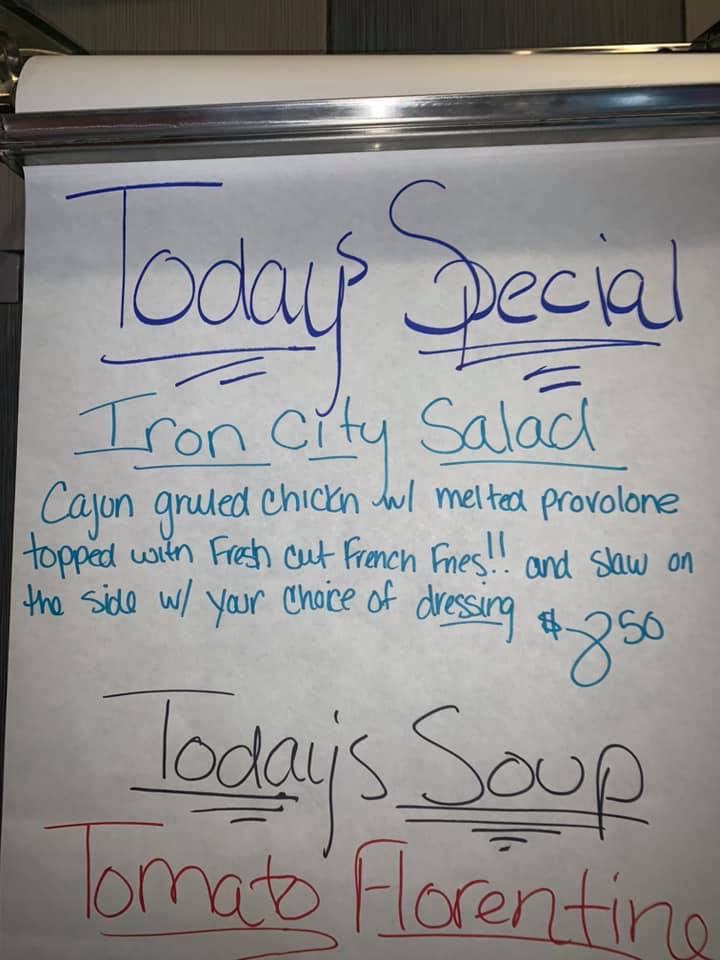 Today's Special
Iron City Salad
Cajun grilled chickn w/ melted provolone
topped with Fresh cut French Fries!! and slaw on
the side w/ your choice of dressing $8.50
Today's Soup
Tomato Florentine